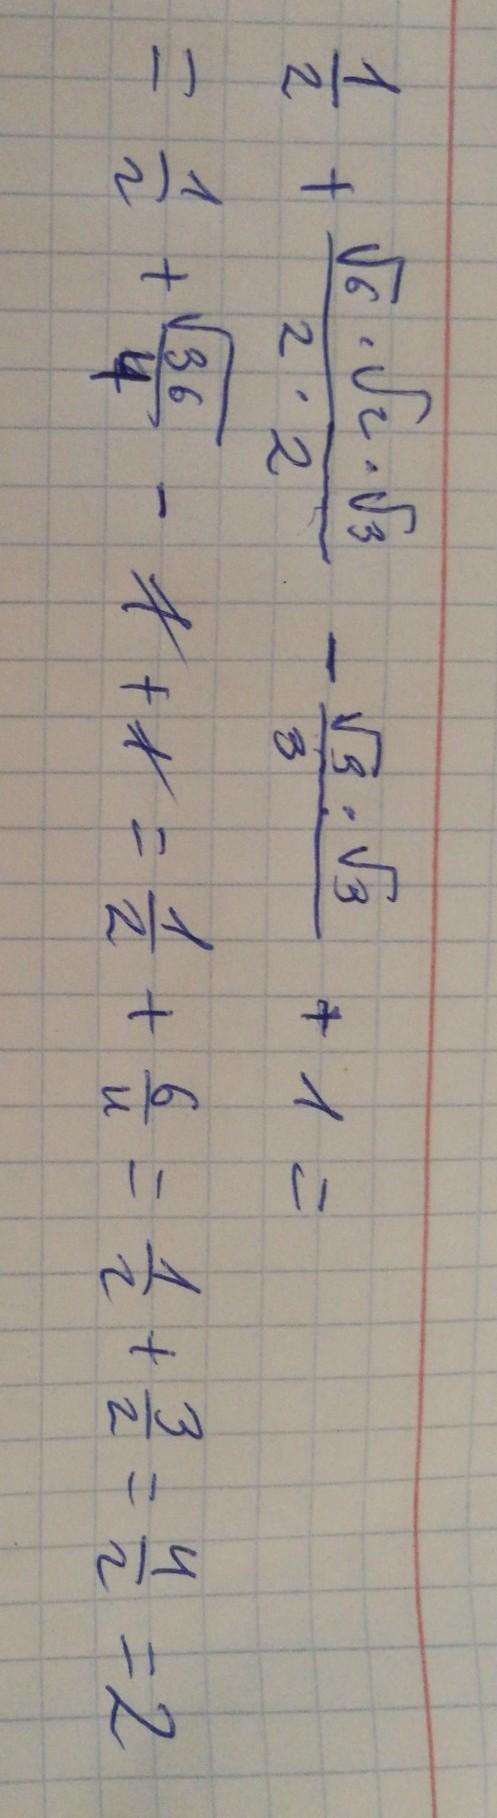 1/2 + (√6 · √2 · √3)/(2 · 2) − (√3 · √3)/3 + 1 =
= 1/2 + √36/4 − 1 + 1 = 1/2 + 6/4 = 1/2 + 3/2 = 4/2 = 2